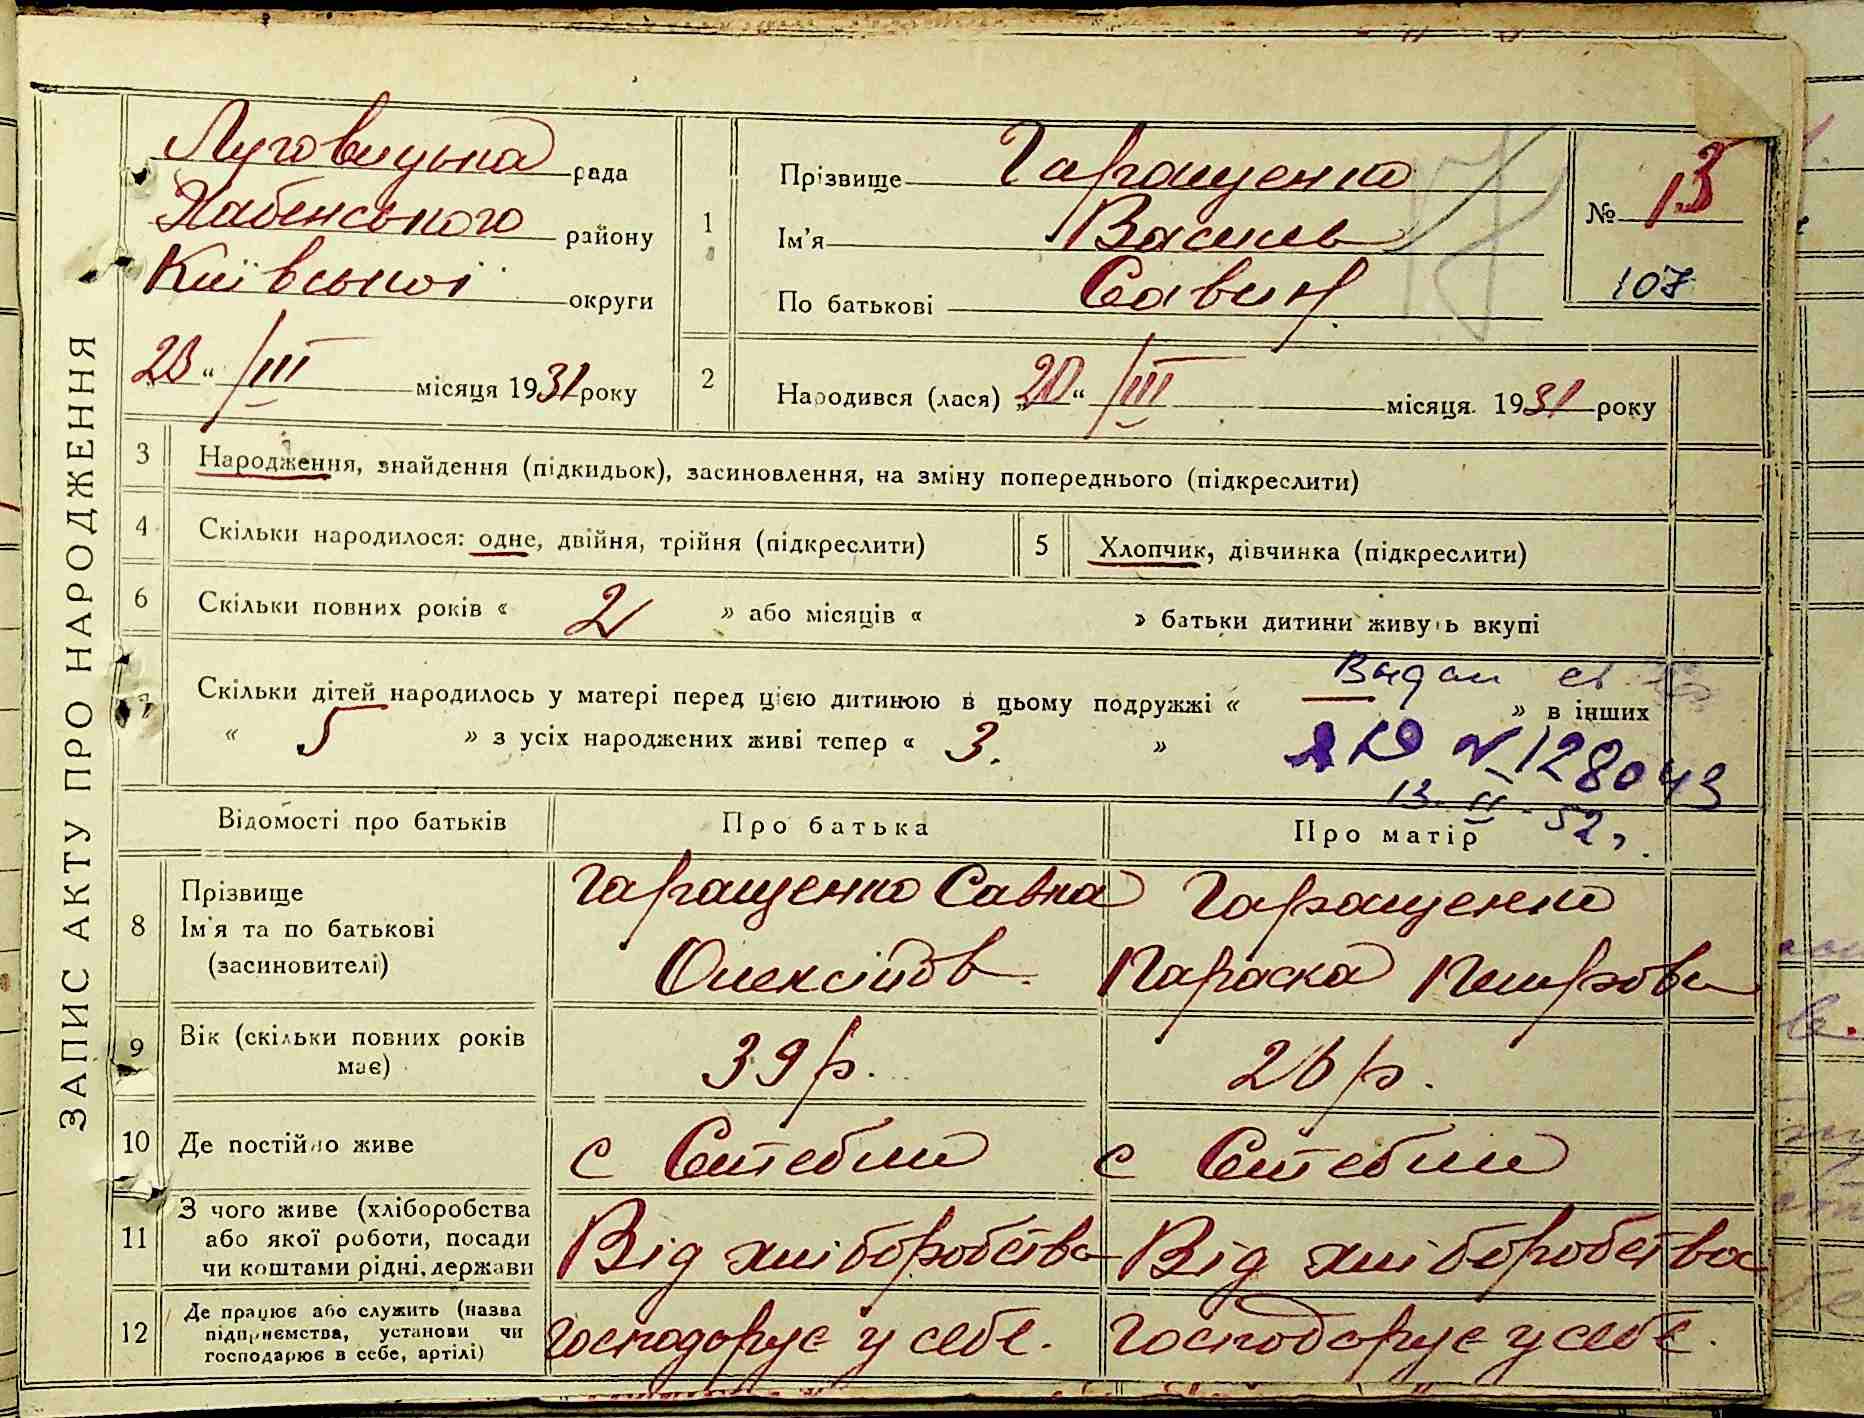 ЗАПИС АКТУ ПРО НАРОДЖЕННЯ
Луговицька рада
Хабенського району
Київської округи
„23“ /III місяця 1931 року
1
Прізвище Гаращенко
Ім'я Василь
По батькові Савин
№ 13
107
17
2
Народився (лася) „20“ /III місяця 1931 року
3 Народження, знайдення (підкидьок), засиновлення, на зміну попереднього (підкреслити)
4 Скільки народилося: одне, двійня, трійня (підкреслити)
5 Хлопчик, дівчинка (підкреслити)
6 Скільки повних років « 2 » або місяців « » батьки дитини живуть вкупі
7 Скільки дітей народилось у матері перед цією дитиною в цьому подружжі « — » в інших
« 5 » з усіх народжених живі тепер « 3. »
Выдан
№ 128043
13-II-52 г.
Відомості про батьків Про батька Про матір
8 Прізвище Ім'я та по батькові (засиновителі)
Гаращенко Савка
Олексійов
Гаращенко
Параска Петрова
9 Вік (скільки повних років має) 39 р. 26 р.
10 Де постійно живе с Стебли с Стебли
11 З чого живе (хліборобства або якої роботи, посади чи коштами рідні, держави Від хліборобства Від хліборобства
12 Де працює або служить (назва підприємства, установи чи господарює в себе, артілі) Господорує у себе. Господорує у себе.